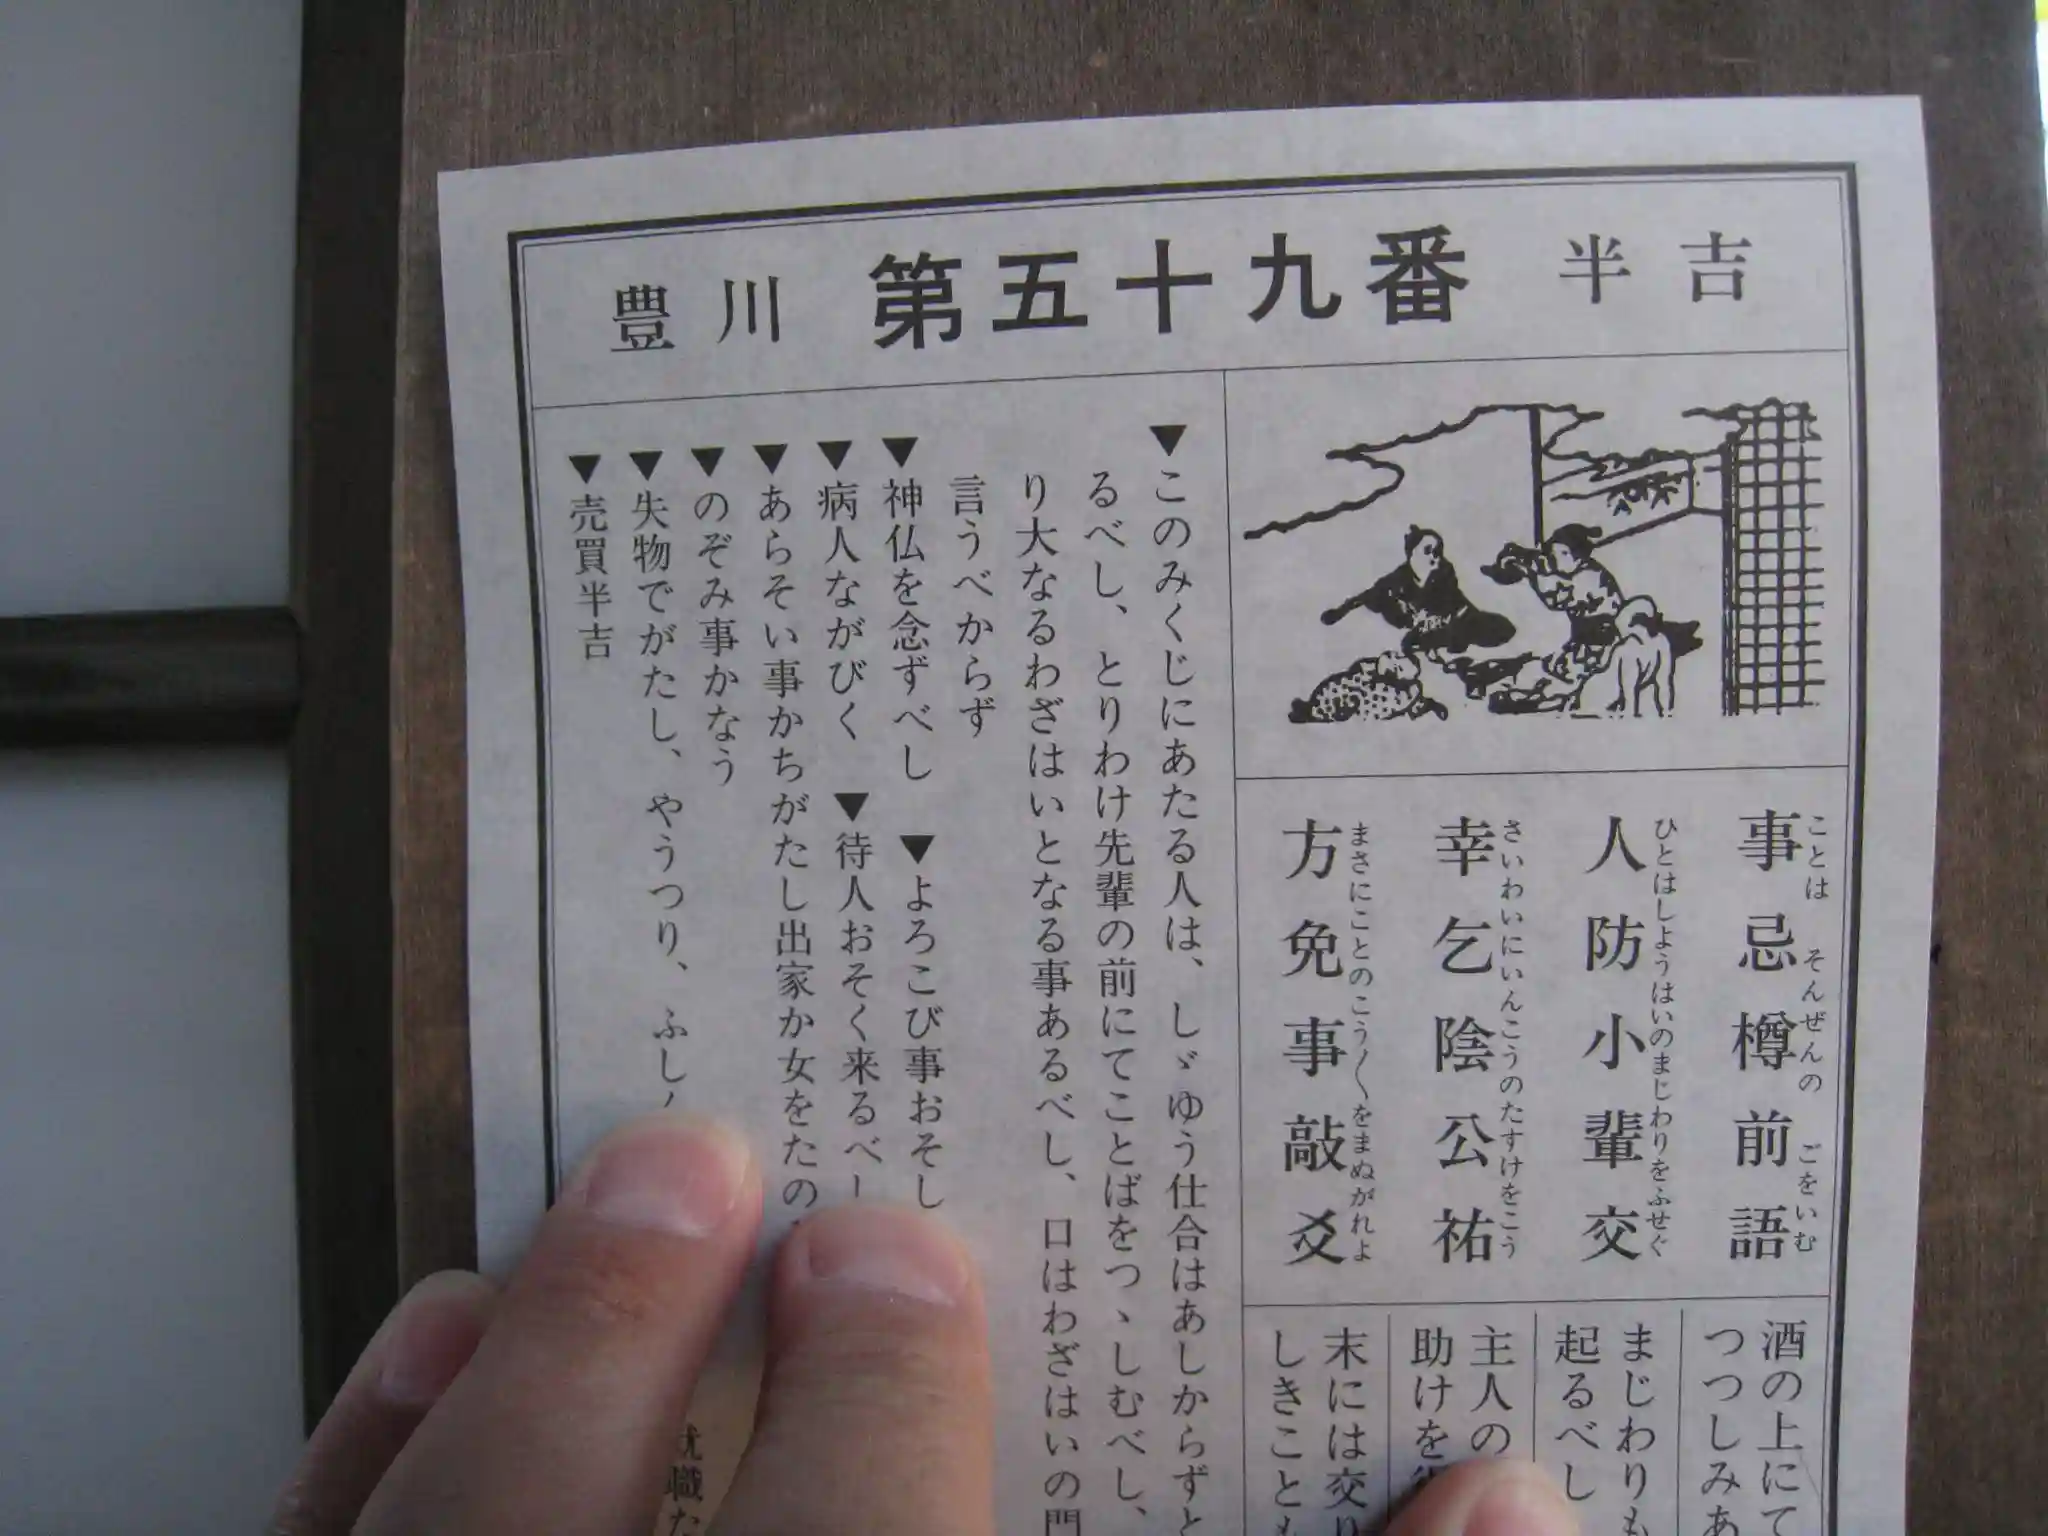 豊川 第五十九番 半吉
事忌樽前語
ことは そんぜんの ごをいむ
人防小輩交
ひとはしようはいのまじわりをふせぐ
幸乞陰公祐
さいわいにいんこうのたすけをこう
方免事敲爻
まさにことのこう〱をまぬがれよ
酒の上にて
つつしみあ
まじわりも
起るべし
主人の
助けを
末には交り
しきことも
▼このみくじにあたる人は、しゞゆう仕合はあしからずと
るべし、とりわけ先輩の前にてことばをつゝしむべし、
り大なるわざはいとなる事あるべし、口はわざはいの門
言うべからず
▼神仏を念ずべし ▼よろこび事おそし
▼病人ながびく ▼待人おそく来るべし
▼あらそい事かちがたし出家か女をたの
▼のぞみ事かなう
▼失物でがたし、やうつり、ふしん
▼売買半吉
就職た